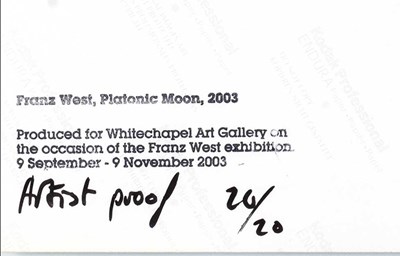 Franz West, Platonic Moon, 2003
Produced for Whitechapel Art Gallery on
the occasion of the Franz West exhibition
9 September - 9 November 2003
Artist proof 20/20